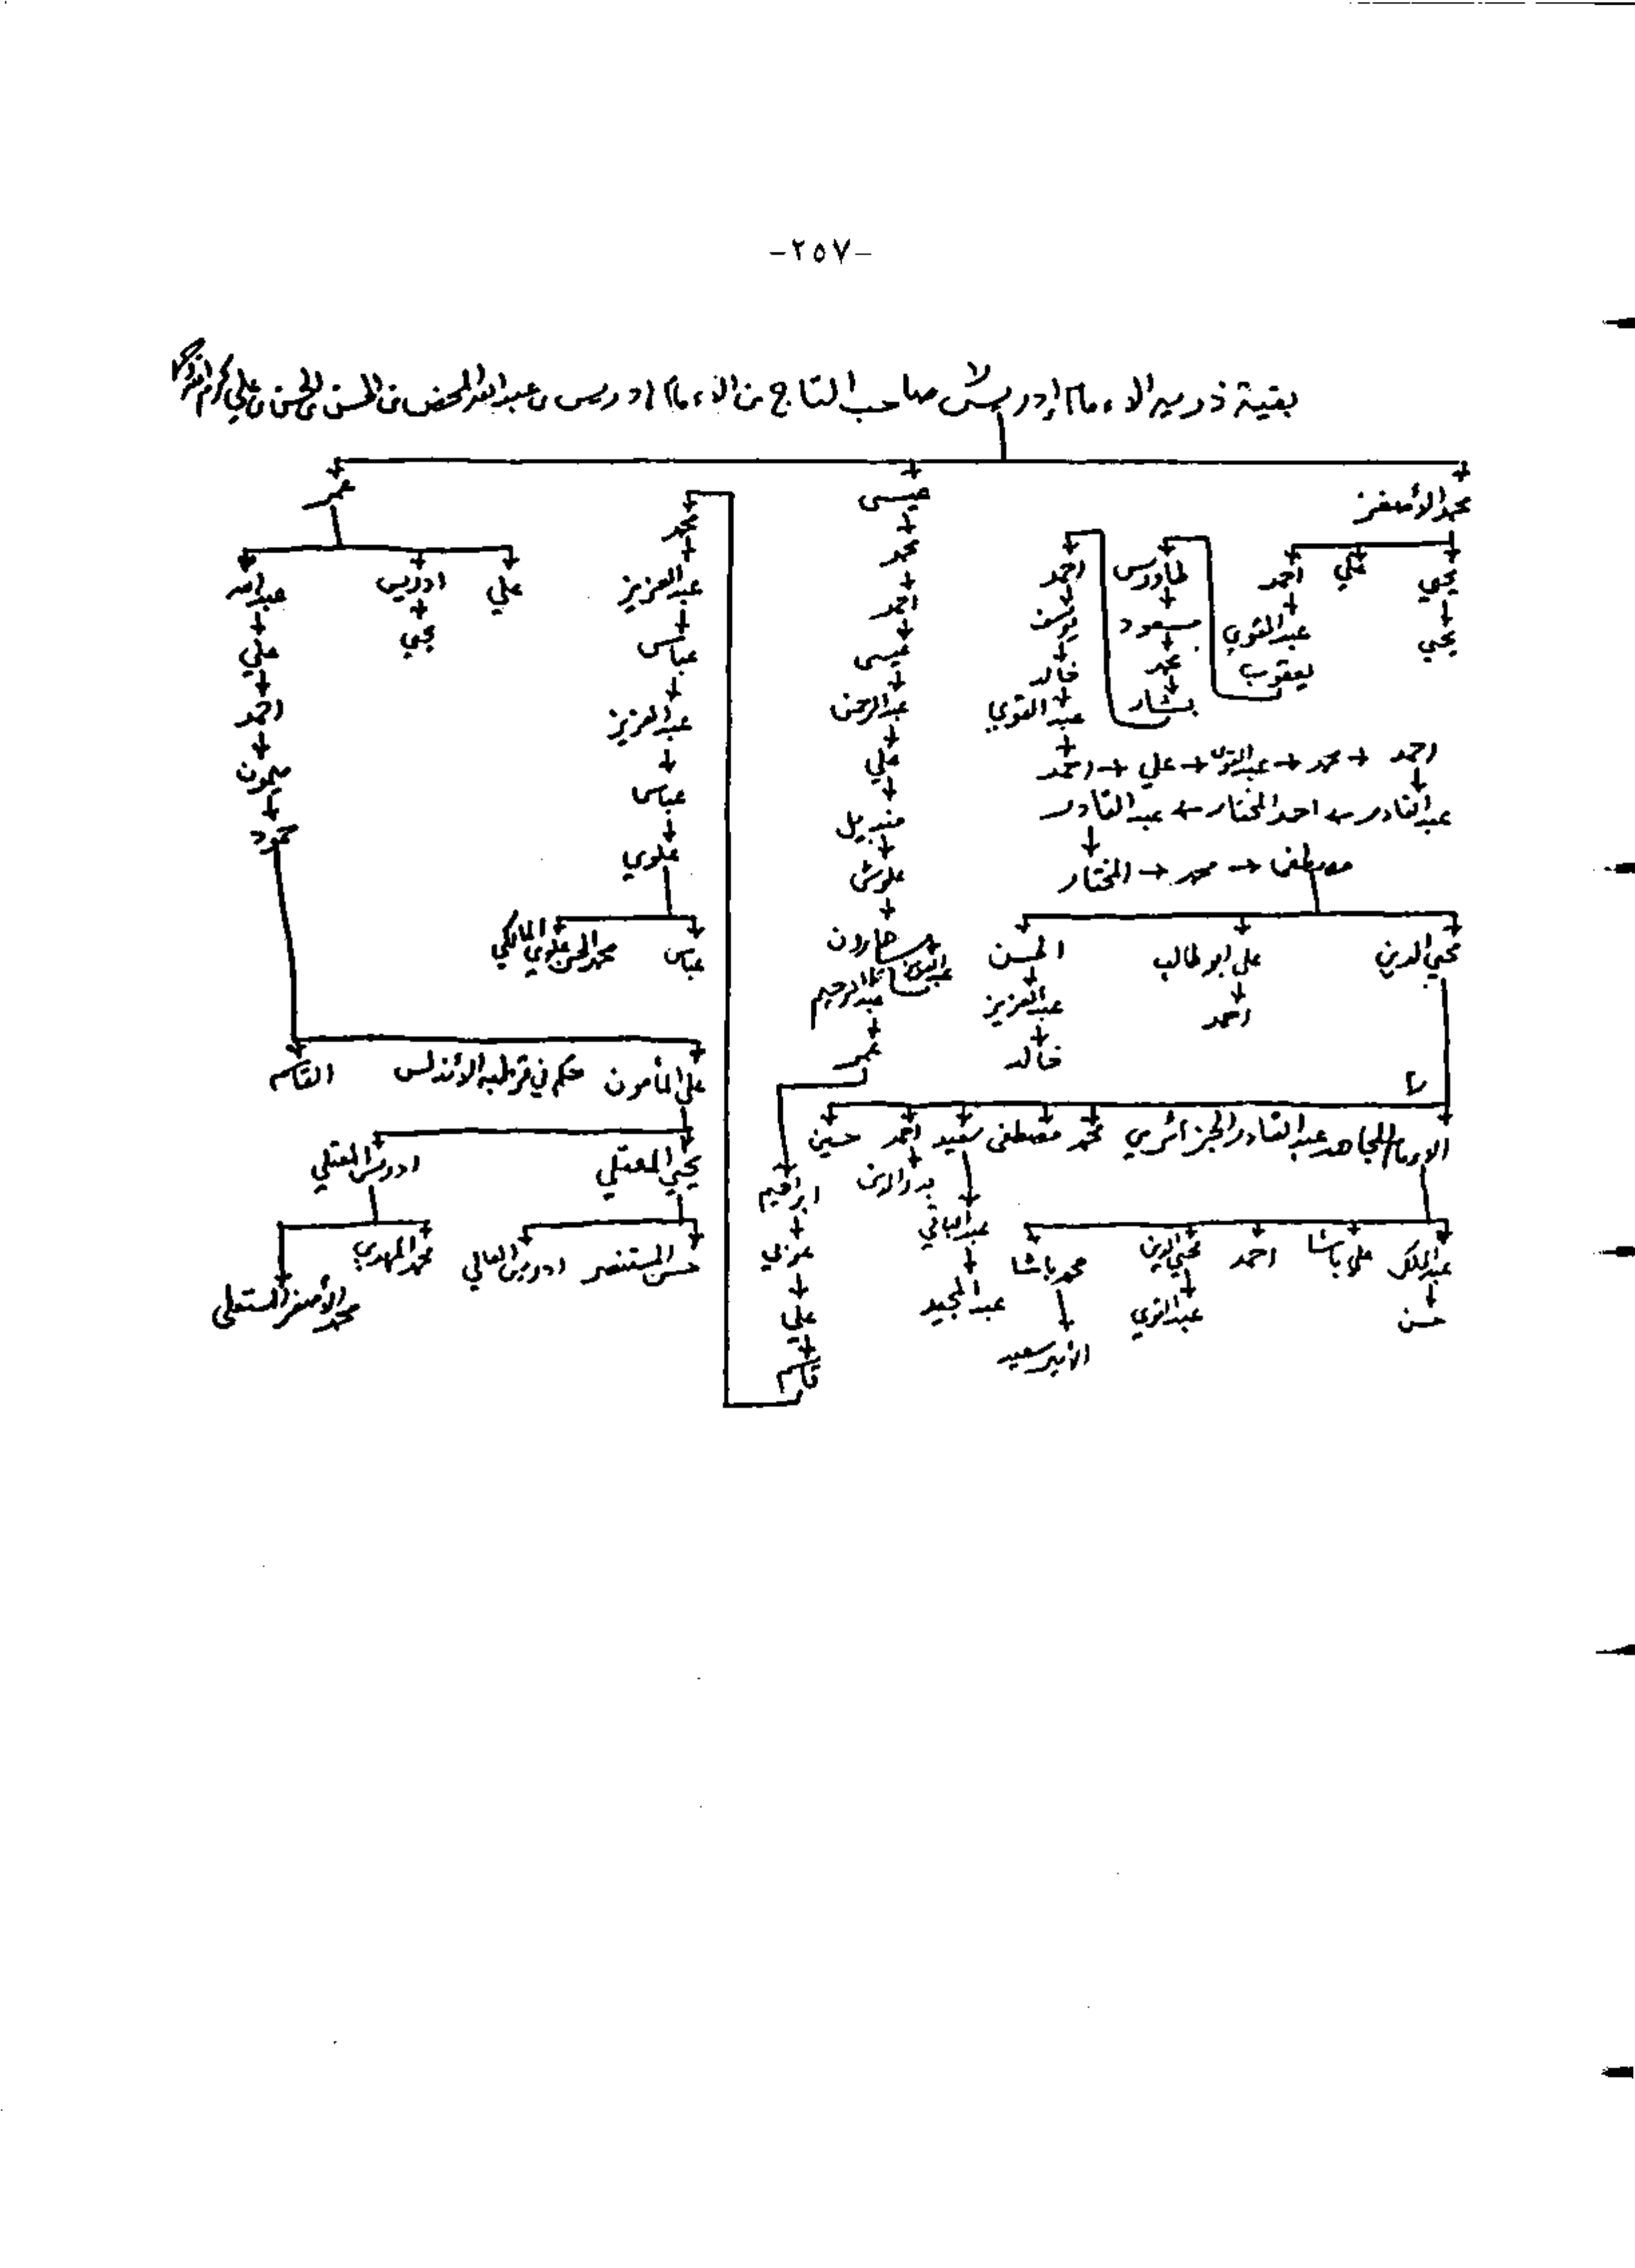 -٢٥٧-
بقية ذرية الامام إدريس صاحب التاج بن الامام ادريس بن عبدالله المحض بن الحسن بن الحسن بن علي كرم الله
محمد الأصغر
عيسى
عمر
يحي علي احمد
يحي
عبدالقوي
يعقوب
طاووس
مسعود
محمد
بشار
احمد
يوسف
خالد
عبد القوي
احمد ← علي ← عبدالقوي ← محمد ← احمد
عبدالقادر ← احمد المختار ← عبد القادر
المختار ← محمد ← مصطفى
محي الدين
علي ابو طالب
احمد
الحسن
عبدالعزيز
خالد
الامام المجاهد عبد القادر الجزائري محمد مصطفى سعيد احمد حسين
بدر الدين
عبدالباقي
عبد المجيد
عبدالملك علي باشا احمد محي الدين محمد باشا
حسن
عبدالقوي
الأمير سعيد
محمد
احمد
عيسى
عبدالرحمن
علي
منديل
علوش
هارون
عبد الرحيم
عمر
ابراهيم
عربي
علي
قاسم
محمد
عبدالعزيز
عباس
عبدالعزيز
عباس
علوي
عباس
محمد الحسن علوي المالكي
علي ادريس عبدالله
يحي
علي
احمد
ميمون
حمود
علي المأمون حكم في قرطبه الأندلس القاسم
يحي المعتلي
ادريس المعتلي
حسن المستنصر
ادريس العالي
محمد المهدي
محمد الأصغر المستعلي